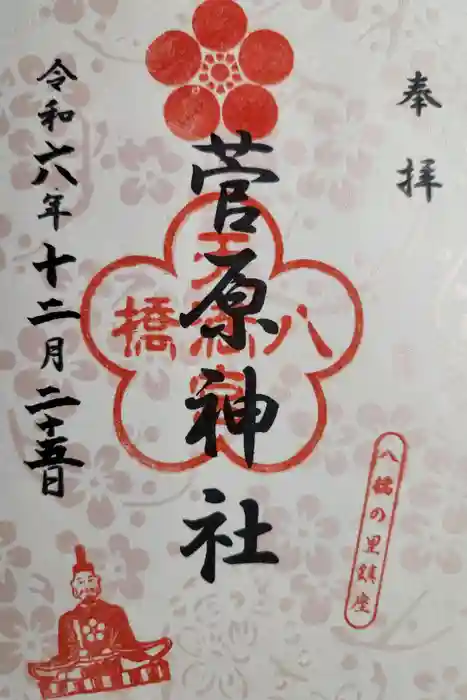 奉拝
菅原神社
八橋
天満宮
八橋の里鎮座
令和六年十二月二十五日